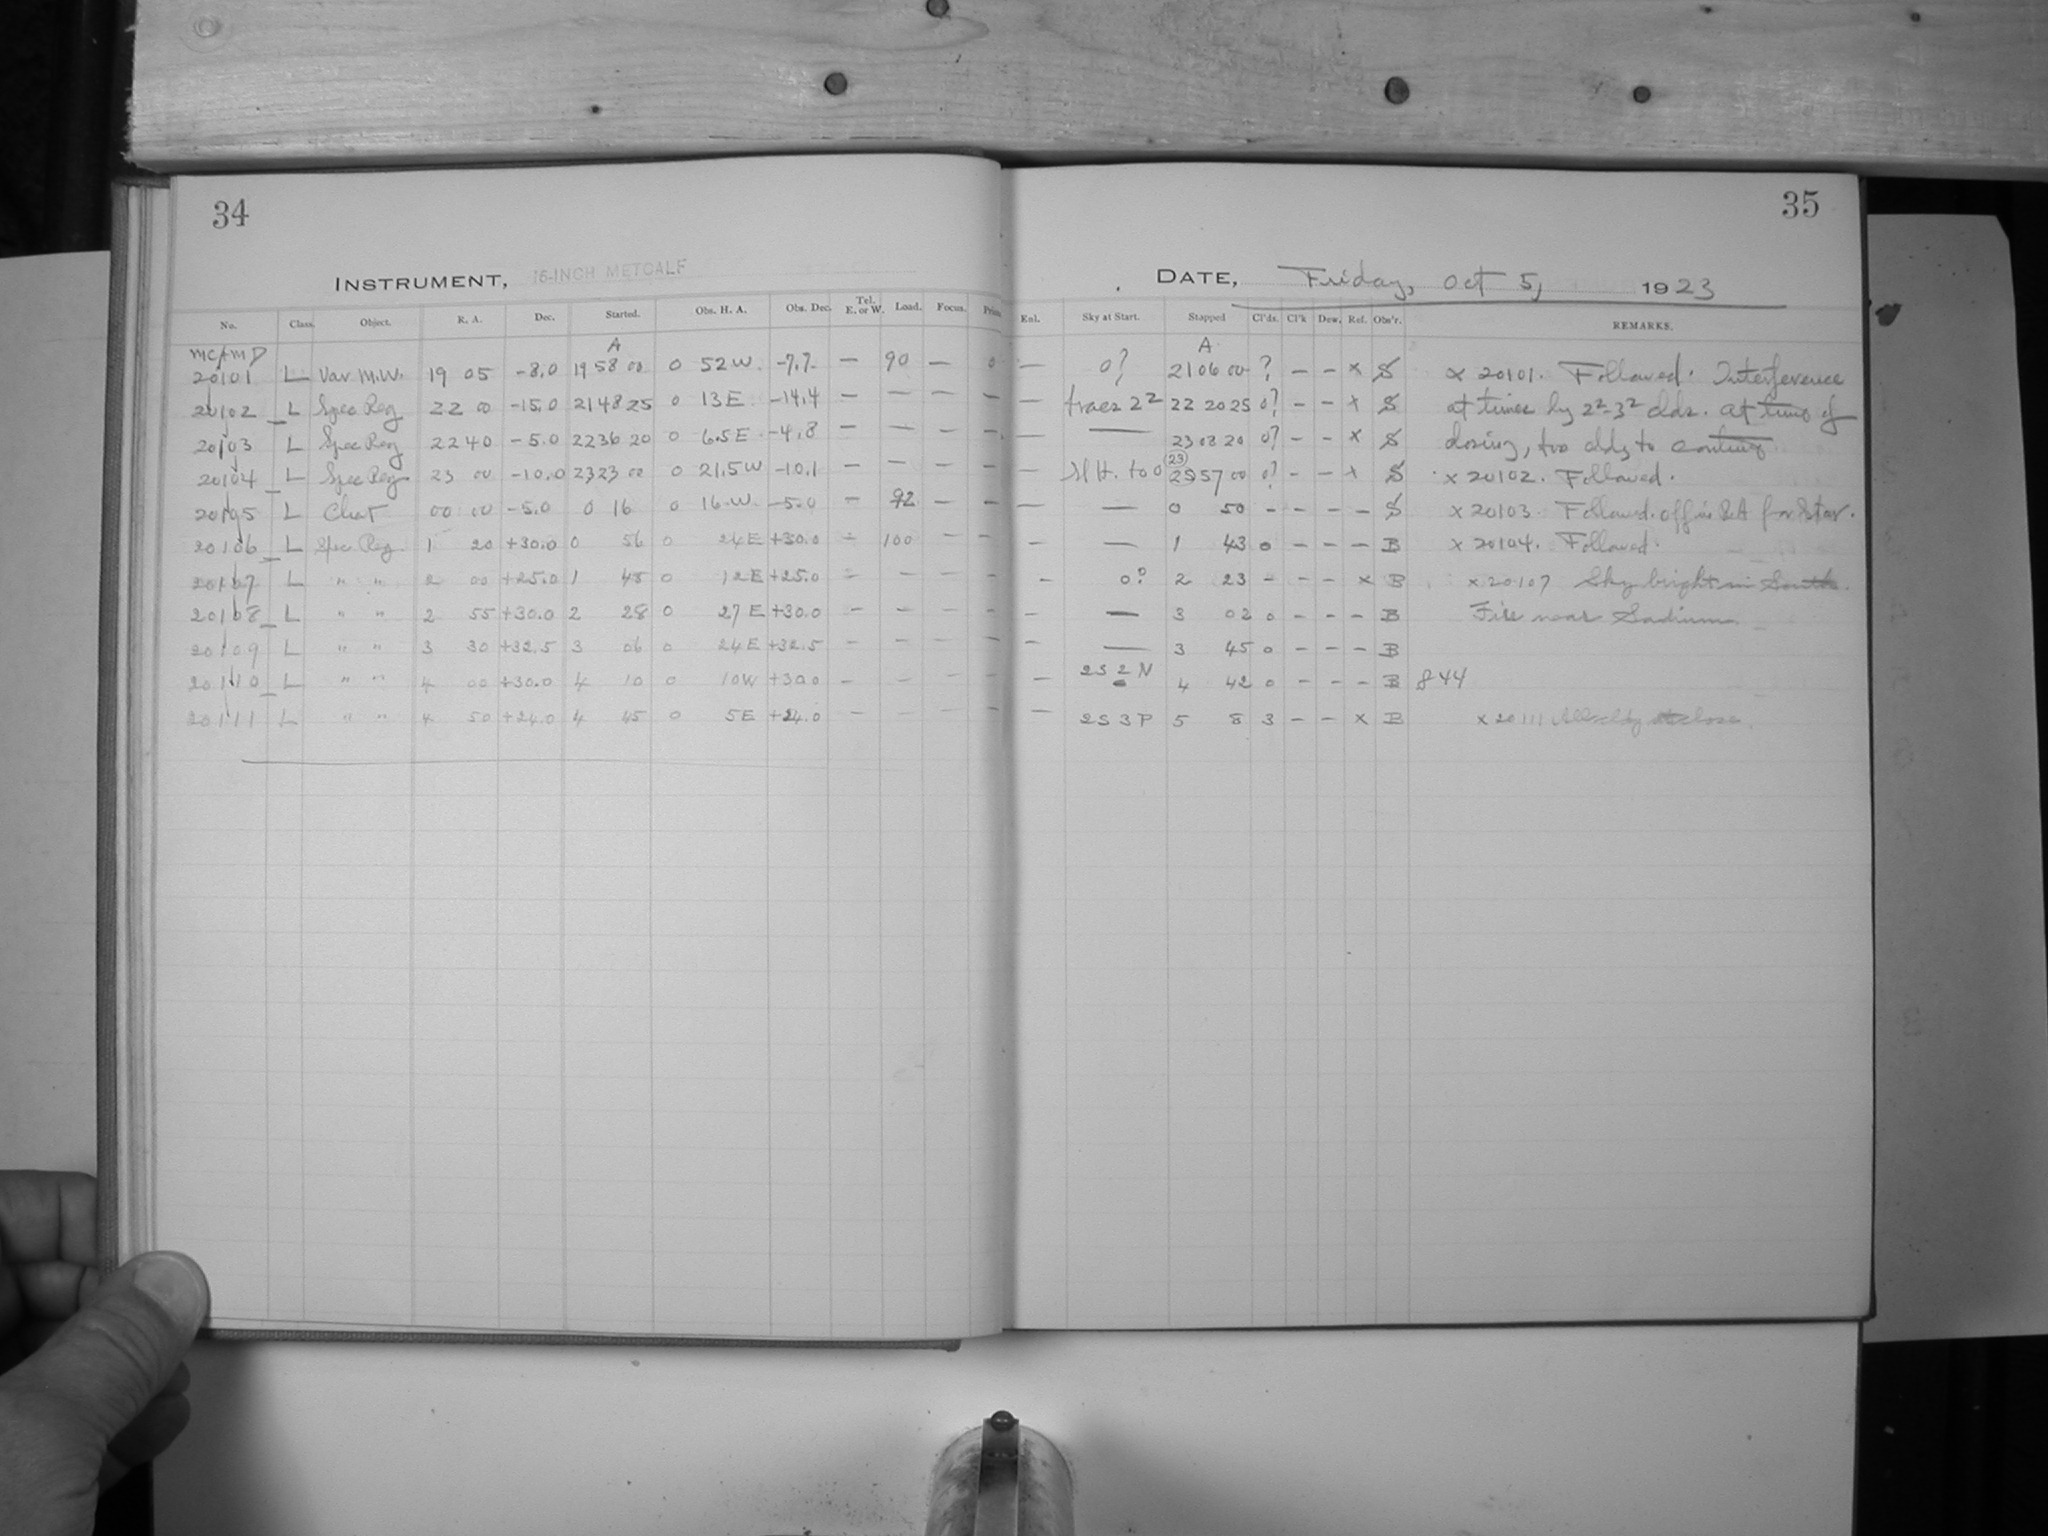 34
INSTRUMENT, 16-INCH METCALF
No. Class. Object. R. A. Dec. Started. Obs. H. A. Obs. Dec. Tel. E. or W. Load. Focus. Prism
MC AMD A
20101 L Var M.W. 19 05 -8.0 19 58 00 0 52 W. -7.7 — 90 — 0
20102 L Spec Reg 22 00 -15.0 21 48 25 0 13 E -14.4 — — — —
20103 L Spec Reg 22 40 -5.0 22 36 20 0 6.5 E -4.8 — — — —
20104 L Spec Reg 23 00 -10.0 23 23 00 0 21.5 W -10.1 — — — —
20105 L 00 00 -5.0 0 16 0 16 W. -5.0 — 92 — —
20106 L Spec Reg. 1 20 +30.0 0 56 0 24 E +30.0 — 100 — —
20107 L " " 2 00 +25.0 1 48 0 12 E +25.0 — — — —
20108 L " " 2 55 +30.0 2 28 0 27 E +30.0 — — — —
20109 L " " 3 30 +32.5 3 06 0 24 E +32.5 — — — —
20110 L " " 4 00 +30.0 4 10 0 10 W +30.0 — — — —
20111 L " " 4 50 +24.0 4 45 0 5 E +24.0 — — — —
35
DATE, Friday, Oct 5, 1923
Enl. Sky at Start. Stopped Cl'ds. Cl'k Dew. Ref. Obs'r. REMARKS.
A
— 0? 21 06 00 ? — — x S x 20101. Followed. Interference
— 2² 22 20 25 0? — — x S at times by 2²-3² clds. at time of
— — 23 02 20 0? — — x S closing, too cldy to continue
23
to 0 57 00 0? — — x S x 20102. Followed.
— 0 50 — — — — S x 20103. Followed. off in RA for Star.
— — 1 43 0 — — — B x 20104. Followed.
— 0? 2 23 — — — x B x 20107 Sky bright in South.
— — 3 02 0 — — — B Fire near Stadium
— — 3 45 0 — — — B
— 2S 2 N 4 42 0 — — — B 844
— 2S 3 P 5 8 3 — — x B x 20111 All cldy at close.